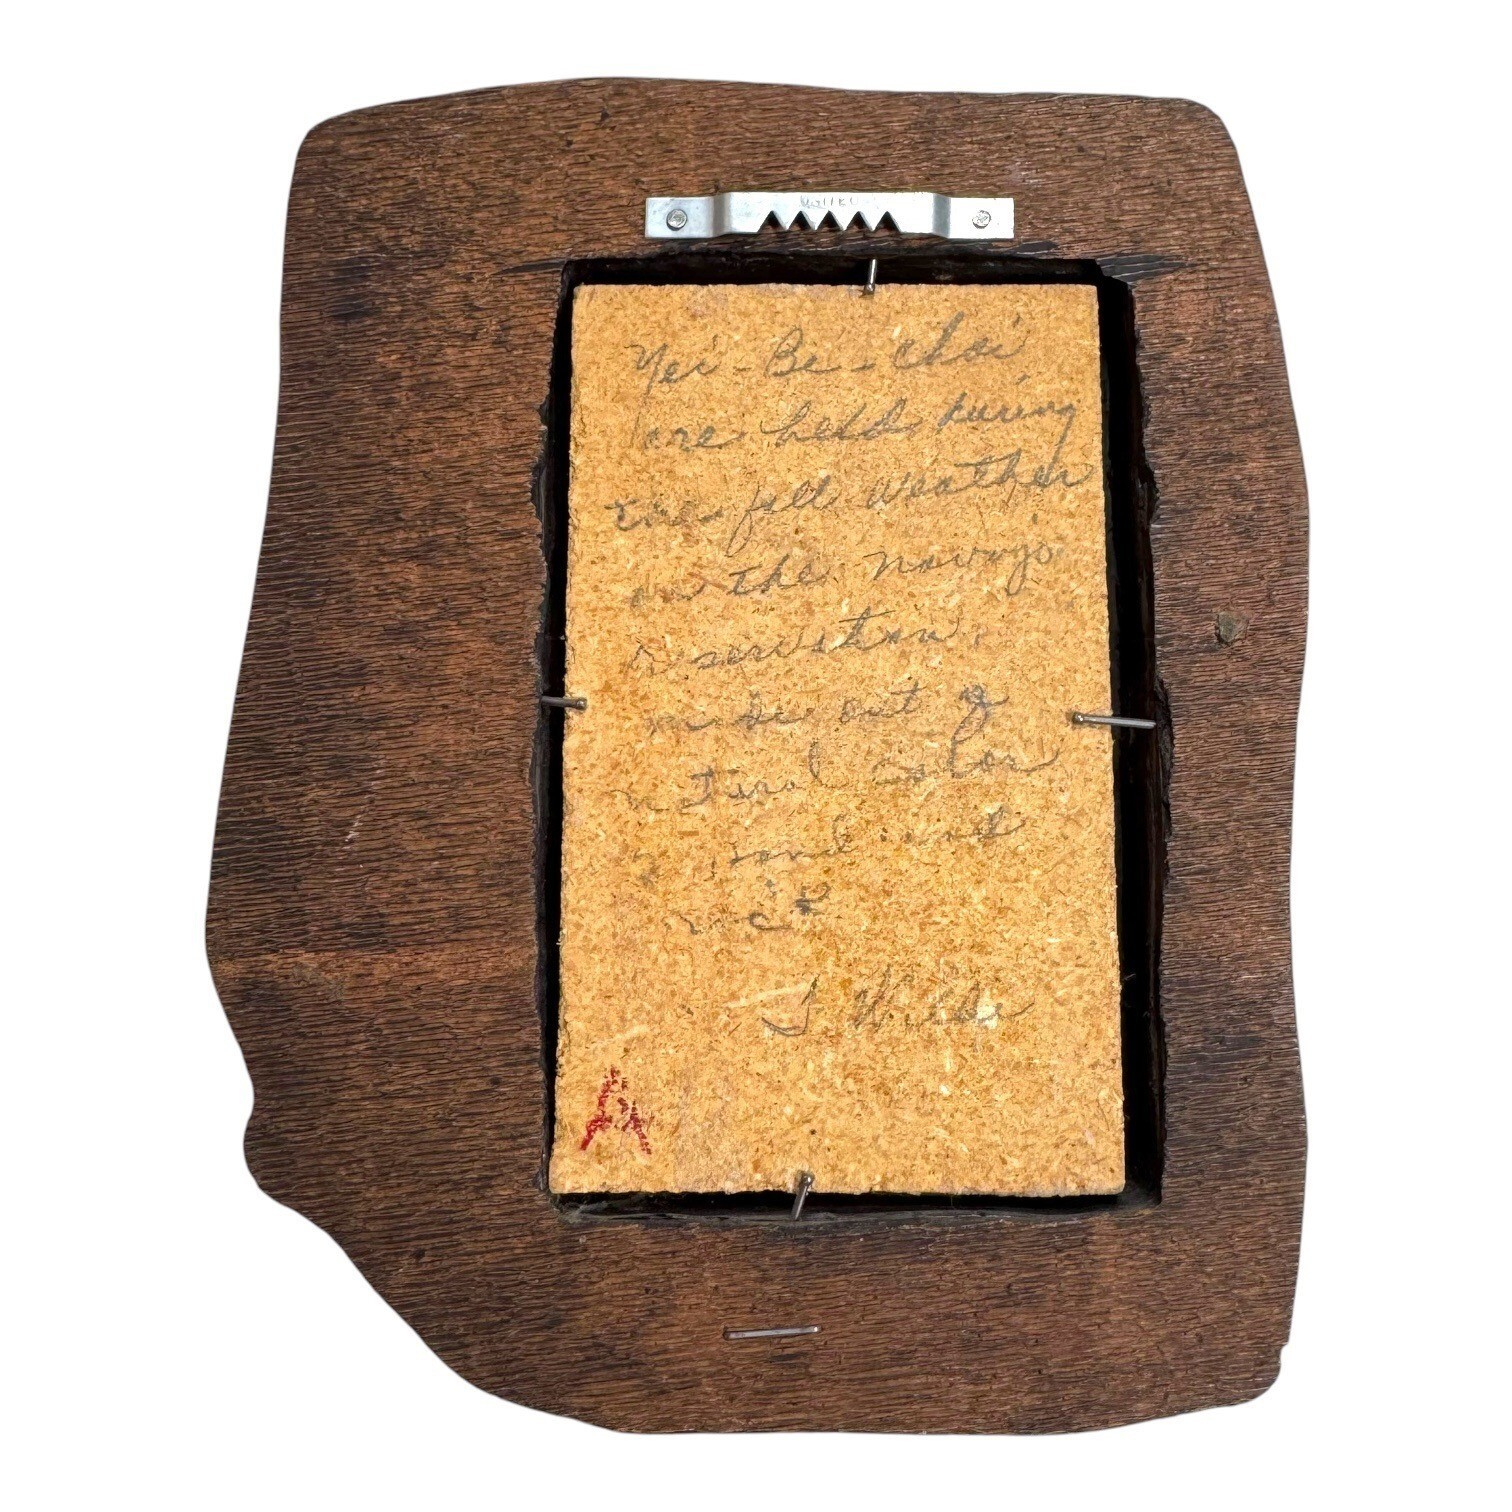 Yei-Be-chai
are held during
the fall weather
on the navajo
reservation.
made out of
natural color
sand and
rock
J Wilde
A